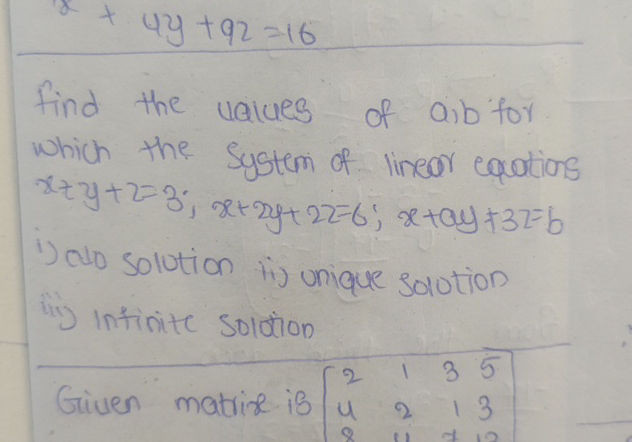 x + 4y + 9z = 16
find the values of a,b for
which the system of linear equations
x+y+z=3; x+2y+2z=6; x+ay+3z=b
i) no solution ii) unique solution
iii) infinite solution
Given matrix is [2 1 3 5
4 2 1 3
8 4 7 13